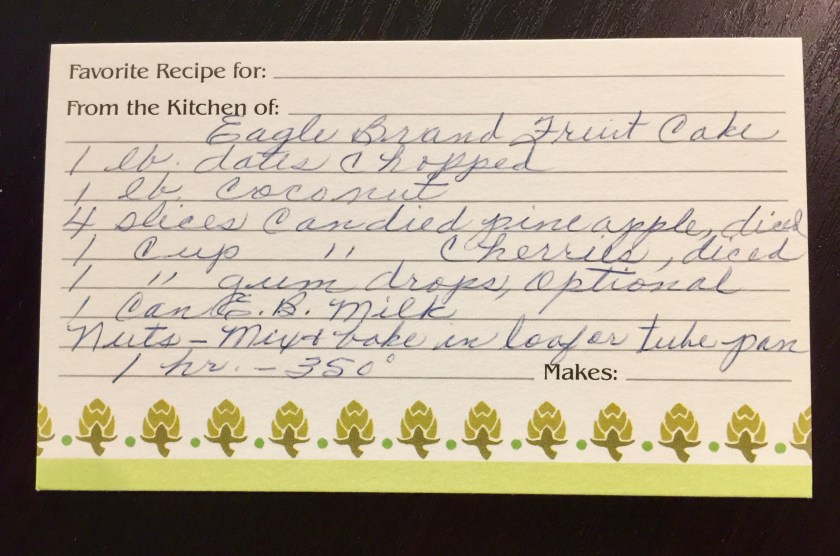 Favorite Recipe for:
From the Kitchen of:
Eagle Brand Fruit Cake
1 lb. dates chopped
1 lb. coconut
4 slices Candied pineapple, diced
1 Cup " Cherries, diced
1 " gum drops, optional
1 Can E.B. Milk
Nuts - Mix + bake in loaf or tube pan
1 hr. - 350°
Makes: